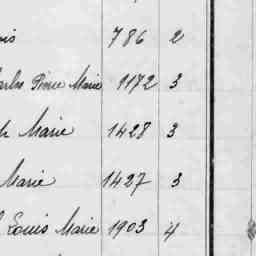 786 2
Pierre Marie 1172 3
Marie 1428 3
Marie 1427 3
Louis Marie 1903 4